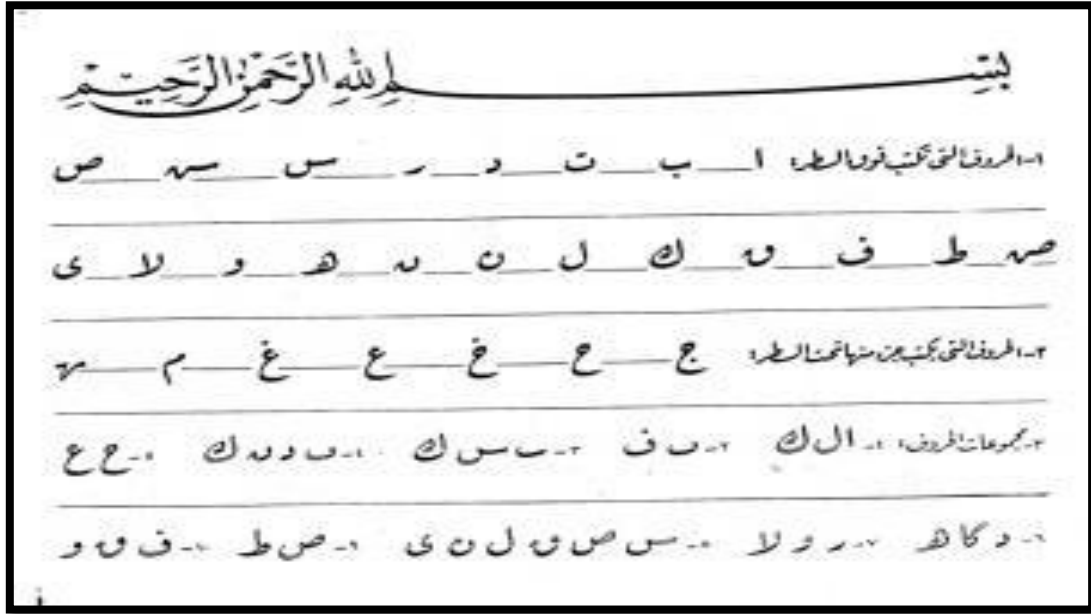 بسم الله الرحمن الرحيم
١- الحروف التى تكتب فوق السطر: ا ب ت د ر س سـ ص
صـ ط ف ق ك ل ن ں ھ و لا ى
٢- الحروف التى يكتب جزء منها تحت السطر: ج ح خ ع غ م مـ
٣- مجموعات الحروف: ١- ا ل ك ٢- ں ف ٣- ٮ س ك ٤- ٮ د ں ك ٥- ح ع
٦- د ك ا ھ ٧- ر و لا ٨- س ص ق ل ن ى ٩- ص ط ١٠- ف ق و